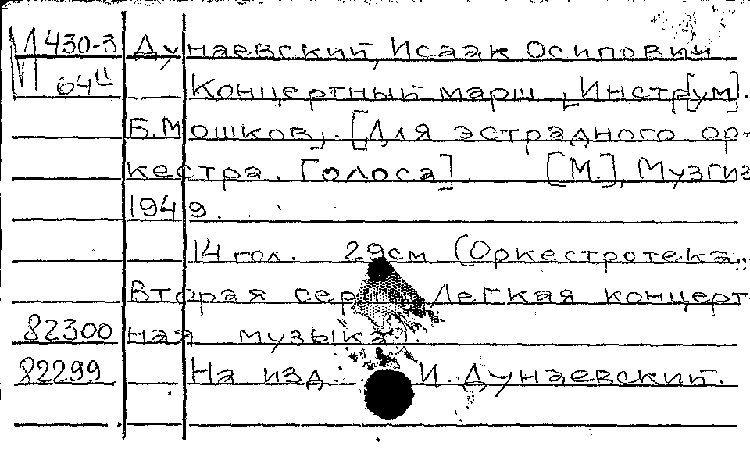 М 430-3 Дунаевский, Исаак Осипович
64ц Концертный марш, Инстр[ум].
Б.Мошков. [Для эстрадного ор-
кестра. Голоса]. [М.], Музгиз
1949.
14 гол. 29см (Оркестротека.
Вторая серия. Легкая концерт
82300 ная музыка).
82299 На изд. И. Дунаевский.